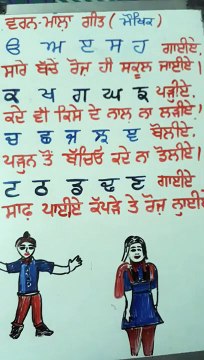 ਵਰਨ-ਮਾਲਾ ਗੀਤ (ਮੌਖਿਕ)
ੳ ਅ ੲ ਸ ਹ ਗਾਈਏ,
ਸਾਰੇ ਬੱਚੇ ਰੋਜ਼ ਹੀ ਸਕੂਲ ਜਾਈਏ।
ਕ ਖ ਗ ਘ ਙ ਪੜ੍ਹੀਏ,
ਕਦੇ ਵੀ ਕਿਸੇ ਦੇ ਨਾਲ ਨਾ ਲੜੀਏ।
ਚ ਛ ਜ ਝ ਞ ਬੋਲੀਏ,
ਪੜ੍ਹਨ ਤੋਂ ਬੱਚਿਓ ਕਦੇ ਨਾ ਡੋਲੀਏ।
ਟ ਠ ਡ ਢ ਣ ਗਾਈਏ,
ਸਾਫ਼ ਪਾਈਏ ਕੱਪੜੇ ਤੇ ਰੋਜ਼ ਨ੍ਹਾਈਏ